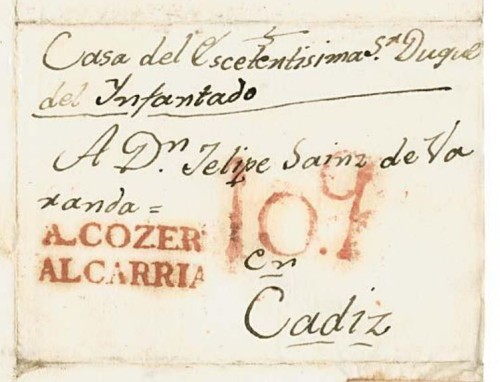 Casa del Escelentisima S.r Duque
del Infantado
A D.n Felipe Sainz de Va
randa =
A.COZER
ALCARRIA
10.9
en
Cadiz